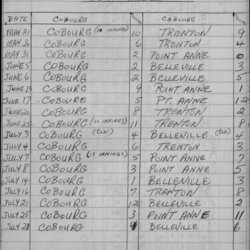 DATE COBOURG COBOURG
MAY 21 COBOURG (10 INNINGS) 10 TRENTON 9
MAY 26 COBOURG 6 TRENTON 4
MAY 31 COBOURG 2 POINT ANNE 0
JUNE 5 COBOURG 2 BELLEVILLE 3
JUNE 6 COBOURG 2 BELLEVILLE
JUNE COBOURG 9 POINT ANNE 1
JUNE 17 COBOURG 5 PT. ANNE 12
JUNE COBOURG TRENTON 2
JUNE 25 COBOURG (11 INNINGS) 11 TRENTON
JULY 3 COBOURG (TIE) 4 BELLEVILLE (TIE) 4
JULY 4 COBOURG 6 TRENTON 3
JULY 7 COBOURG 5 POINT ANNE
JULY 8 COBOURG 3 POINT ANNE 5
JULY 14 COBOURG 1 BELLEVILLE 3
JULY 16 COBOURG 7 TRENTON 8
JULY 21 COBOURG 12 BELLEVILLE 2
JULY 25 COBOURG 3 POINT ANNE 11
JULY 28 COBOURG 4 BELLEVILLE 6